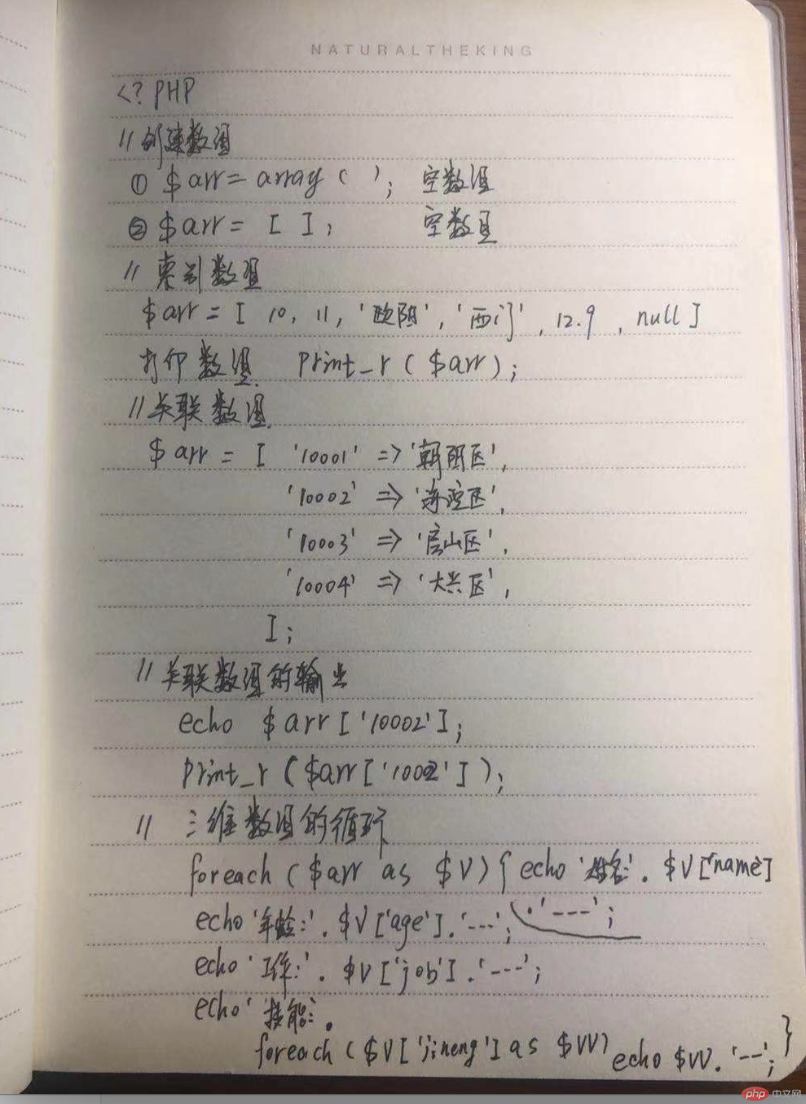 NATURALTHEKING
<? PHP
// 创建数组
① $arr = array ( ); 空数组
② $arr = [ ]; 空数组
// 索引数组
$arr = [ 10, 11, '欧阳', '西门', 12.9, null ]
打印数组. print_r ( $arr );
// 关联数组
$arr = [ '10001' => '朝阳区',
'10002' => '海淀区',
'10003' => '房山区',
'10004' => '大兴区',
];
// 关联数组的输出
echo $arr ['10002'];
print_r ($arr ['10002'] );
// 三维数组的循环
foreach ( $arr as $V) { echo '姓名:'. $V['name']
.'---';
echo '年龄:'. $V['age'].'---';
echo '工作:'. $V['job'].'---';
echo '技能:'.
foreach ($V['jineng'] as $VV) echo $VV. '--'; }
php 中文网